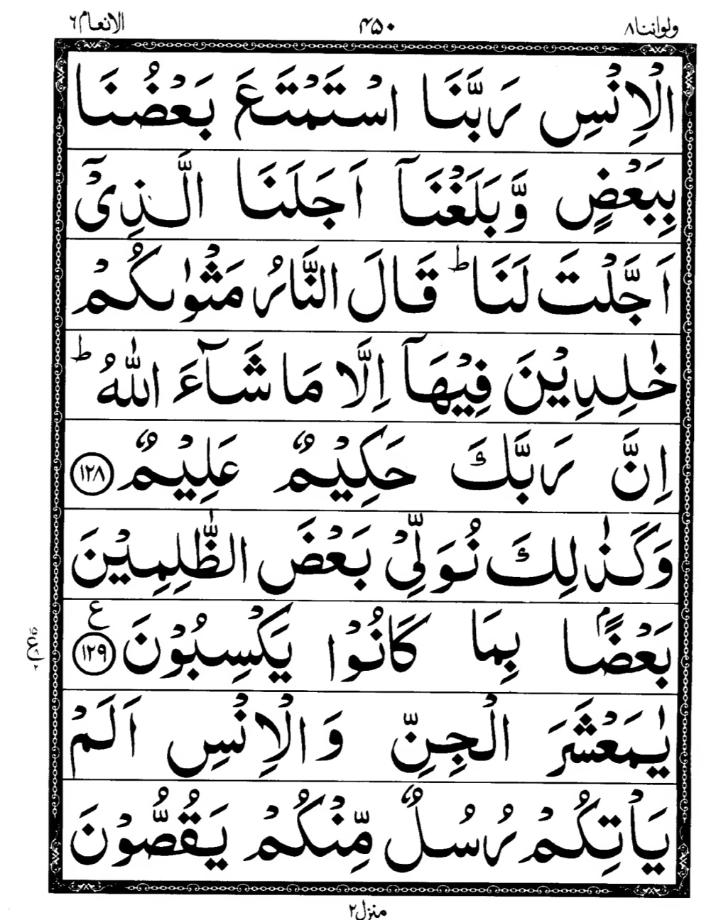 ولواننا ٨ ۴۵۰ الانعام ٦
الْاِنْسِ رَبَّنَا اسْتَمْتَعَ بَعْضُنَا
بِبَعْضٍ وَّبَلَغْنَاۤ اَجَلَنَا الَّذِیْۤ
اَجَّلْتَ لَنَا ؕ قَالَ النَّارُ مَثْوٰىكُمْ
خٰلِدِیْنَ فِیْهَاۤ اِلَّا مَا شَآءَ اللّٰهُ ؕ
اِنَّ رَبَّكَ حَكِیْمٌ عَلِیْمٌ ﴿١٢٨﴾
وَكَذٰلِكَ نُوَلِّیْ بَعْضَ الظّٰلِمِیْنَ
بَعْضًۢا بِمَا كَانُوْا یَكْسِبُوْنَ ﴿١٢٩﴾ ع
یٰمَعْشَرَ الْجِنِّ وَالْاِنْسِ اَلَمْ
یَاْتِكُمْ رُسُلٌ مِّنْكُمْ یَقُصُّوْنَ
منزل ٢